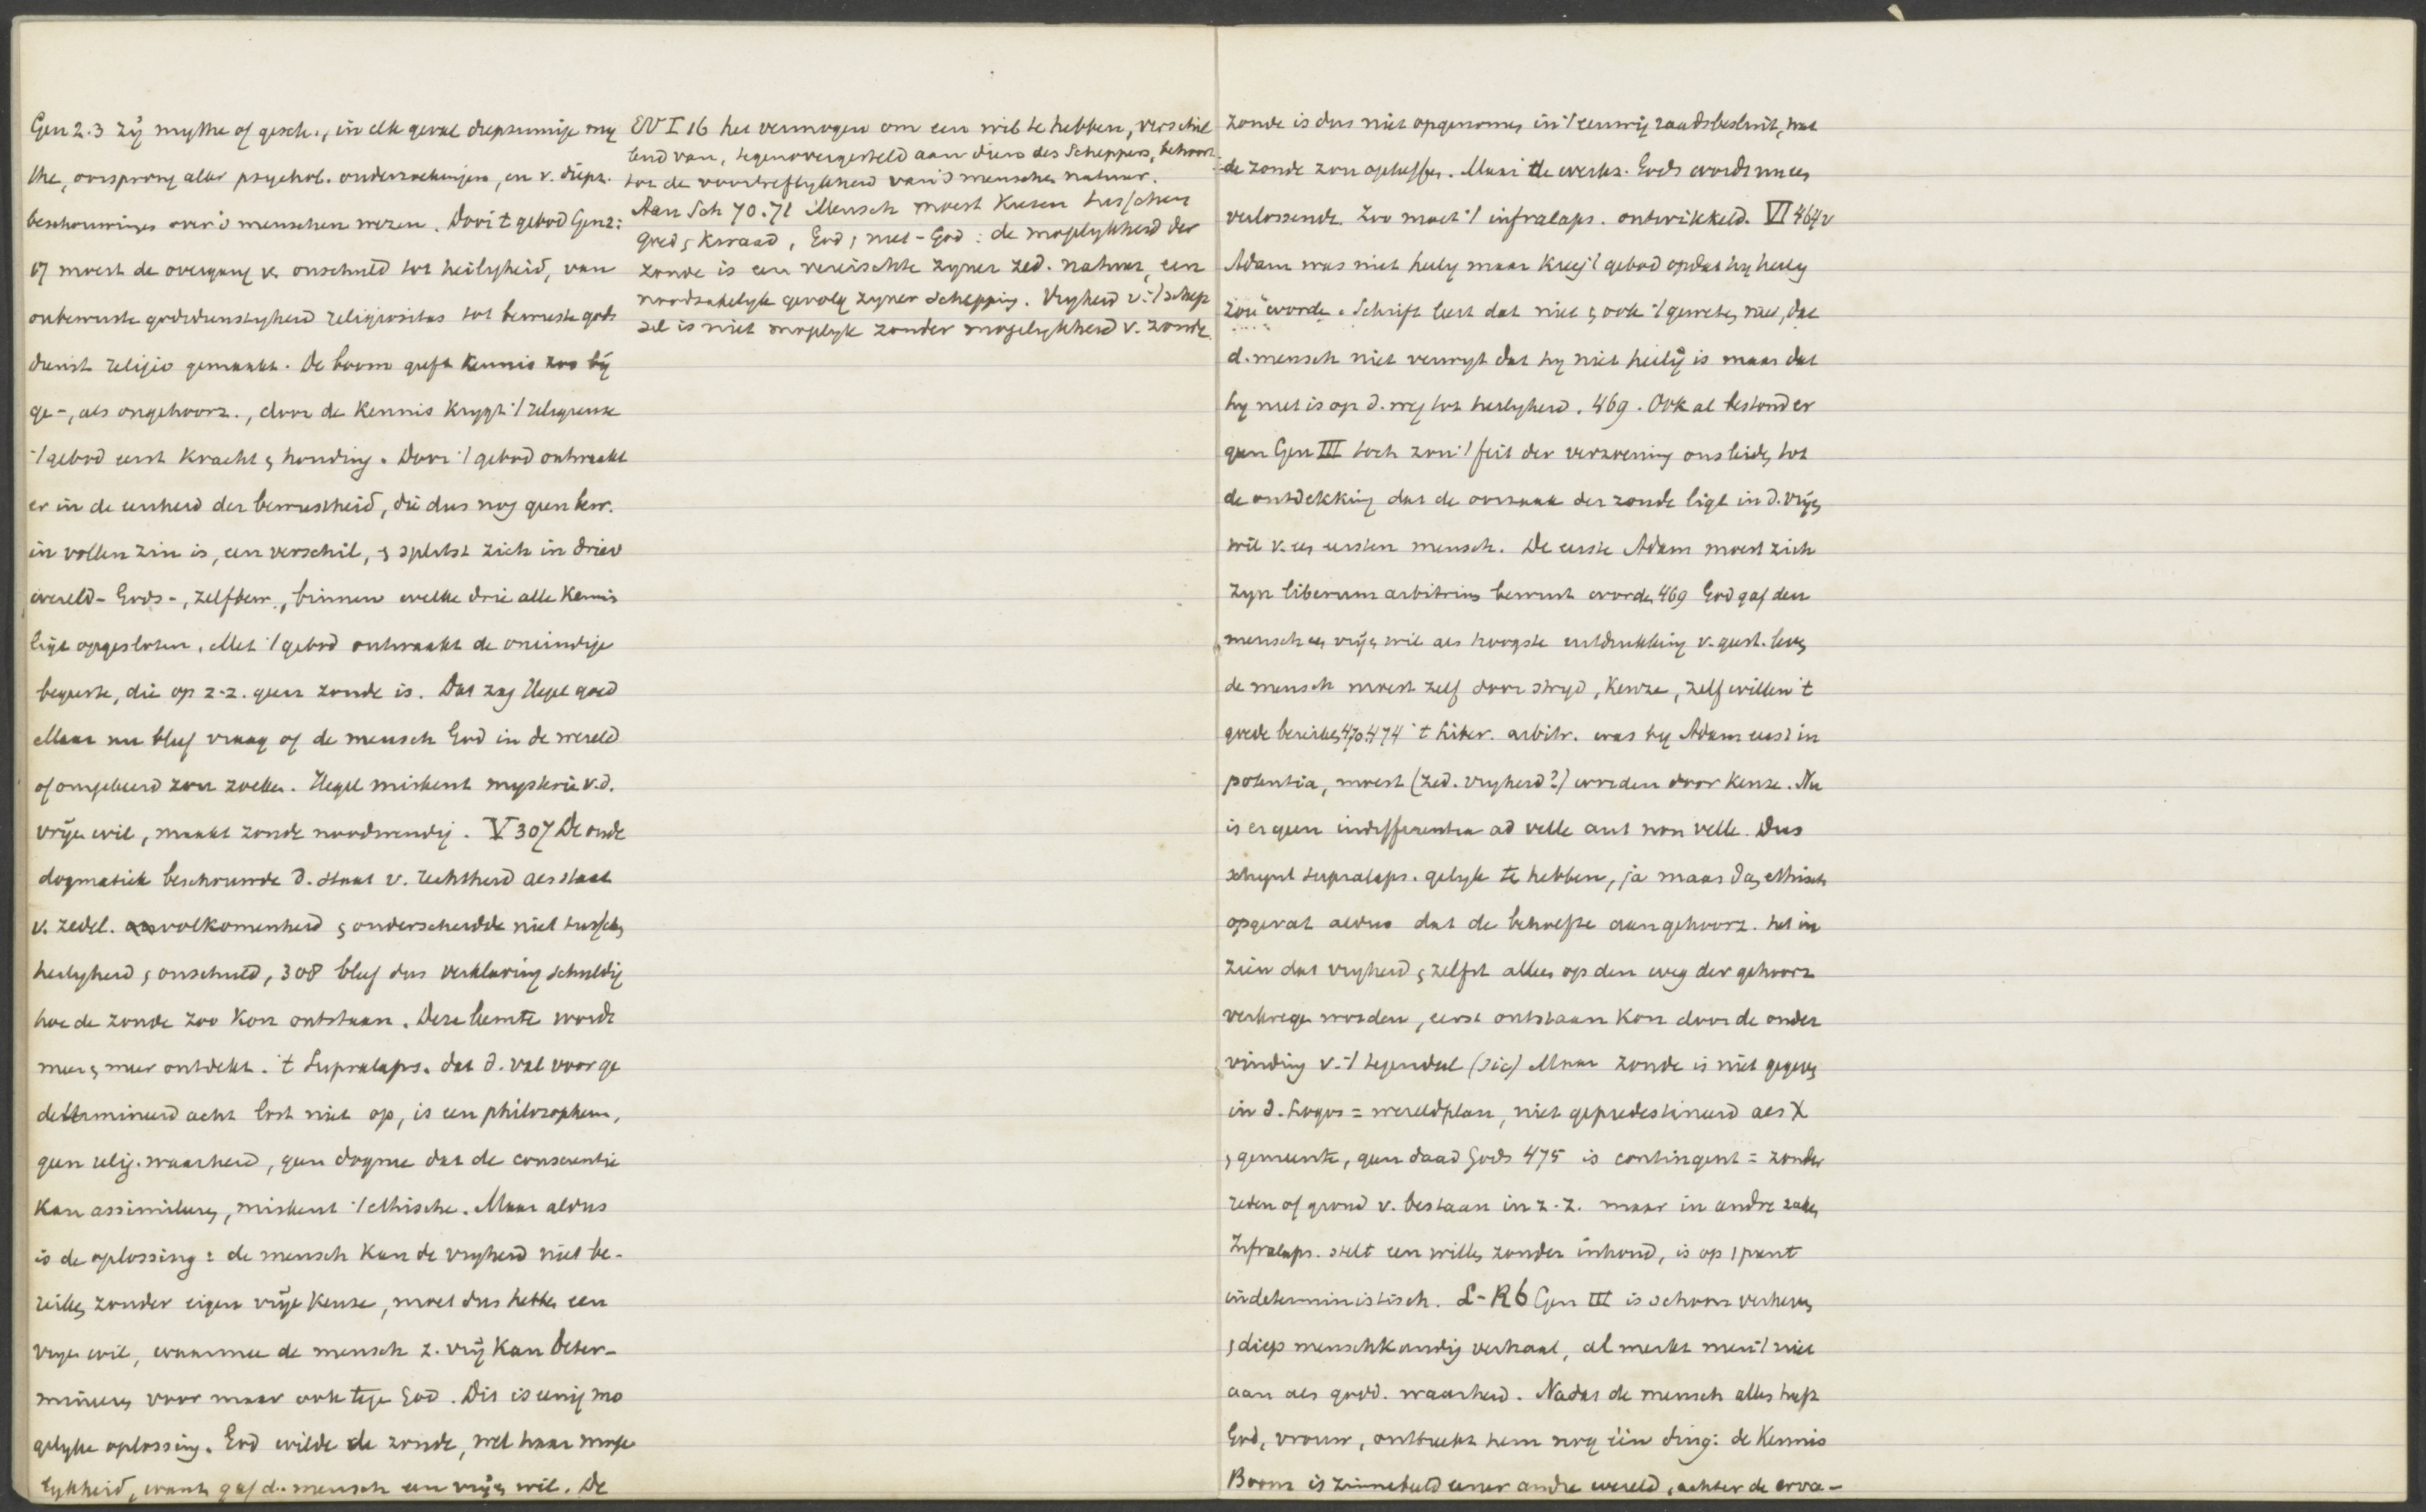 Gen 2.3 zij mythe of gesch., in elk geval diepzinnige my
the, oorsprong aller psychol. onderzoekingen, en v. diepz.
beschouwinges over 's menschen wezen. Door 't gebod Gen 2:
17 moest de overgang v. onschuld tot heiligheid, van
onbewuste godsdienstigheid religiositas tot bewuste gods
dienst religio gemaakt. De boom geeft kennis zoo bij
ge-, als ongehoorz., door de kennis krijgt 't religieuse
't gebod eerst kracht & houding. Door 't gebod ontwaakt
er in de eenheid der bewustheid, die dus nog geen bew.
in vollen zin is, een verschil, & splitst zich in drieë
wereld- Gods-, zelfbew., binnen welke drie alle kennis
ligt opgesloten. Met 't gebod ontwaakt de oneindige
begeerte, die op z-z. geen zonde is. Dat zag Hegel goed
Maar nu bleef vraag of de mensch God in de wereld
of omgekeerd zou zoeken. Hegel miskent mysterie v.d.
vrijen wil, maakt zonde noodwendig. V 307 De oude
dogmatiek beschouwde d. staat v. rechtheid als staat
v. zedel. volkomenheid & onderscheidde niet tusschen
heiligheid & onschuld, 308 bleef dus verklaring schuldig
hoe de zonde zoo kon ontstaan. Deze leemte wordt
meer & meer ontdekt. 't Supralaps. dat d. val voor ge
determineerd acht lost niet op, is een philosophem,
geen relig. waarheid, geen dogme dat de conscientie
kan assimileren, miskent 't ethische. Maar aldus
is de oplossing: de mensch kan de vrijheid niet be-
reiken zonder eigen vrije keuze, moet dus hebben een
vrijen wil, waarmee de mensch z. vrij kan deter-
mineren voor maar ook tege God. Dit is eenig mo
gelijke oplossing. God wilde de zonde, wel haar moge
lijkheid, want gaf d. mensch een vrijen wil. De
EV I 16 het vermogen om een wil te hebben, verschil
lend van, tegenovergesteld aan diens des Scheppers, behoort
tot de voortreflijkheid van 's menschen natuur.
Aan Sch 70.71 Mensch moest kiezen tusschen
goed & kwaad, God & niet-God: de mogelijkheid der
zonde is een vereischte zijner zed. natuur, een
noodzakelijk gevolg zijner schepping. Vrijheid v. 't schep
sel is niet mogelijk zonder mogelijkheid v. zonde.
zonde is dus niet opgenomen in 't eeuwig raadsbesluit, wat
de zonde zou opheffen. Maar de werkz. Gods wordt nu een
verlossende. Zoo moet 't infralaps. ontwikkeld. VI 464v
Adam was niet heilig maar kreeg 't gebod opdat hij heilig
zou worde. Schrift leert dat niet & ook 't geweten niet, dat
d. mensch niet verwijt dat hij niet heilig is maar dat
hij niet is op d. weg tot heiligheid. 469. Ook al bestond er
geen Gen III toch zou 't feit der verzoening ons leiden tot
de ontdekking dat de oorzaak der zonde ligt in d. vrijen
wil v. een eersten mensch. De eerste Adam moest zich
zijn liberum arbitrium bewust worde 469 God gaf den
mensch een vrijen wil als hoogste uitdrukking v. geest. leven
de mensch moest zelf door strijd, keuze, zelf willen 't
goede bereiken 470.474 't liber. arbitr. was bij Adam eerst in
potentia, moest (zed. vrijheid?) worden door keuze. Nu
is er geen indifferentia ad velle aut non velle. Dus
schijnt supralaps. gelijk te hebben, ja maar dan ethisch
opgevat aldus dat de behoefte aan gehoorz. het in
zien dat vrijheid & zelfst alleen op den weg der gehoorz
verkrege worden, eerst ontstaan kon door de onder
vinding v. 't tegendeel (sic) Maar zonde is niet gegeven
in d. Logos = wereldplan, niet gepredestineerd als X
& gemeente, geen daad Gods 475 is contingent = zonder
reden of grond v. bestaan in z-z. maar in andre zaken
Infralaps. stelt een willen zonder inhoud, is op 1 punt
indeterministisch. L-R 6 Gen III is schoon verheven
& diep menschkundig verhaal, al merkt men 't niet
aan als godd. waarheid. Nadat de mensch alles heeft
God, vrouw, ontbreekt hem nog één ding: de kennis
Boom is zinnebeeld eener andre wereld, achter de erva-